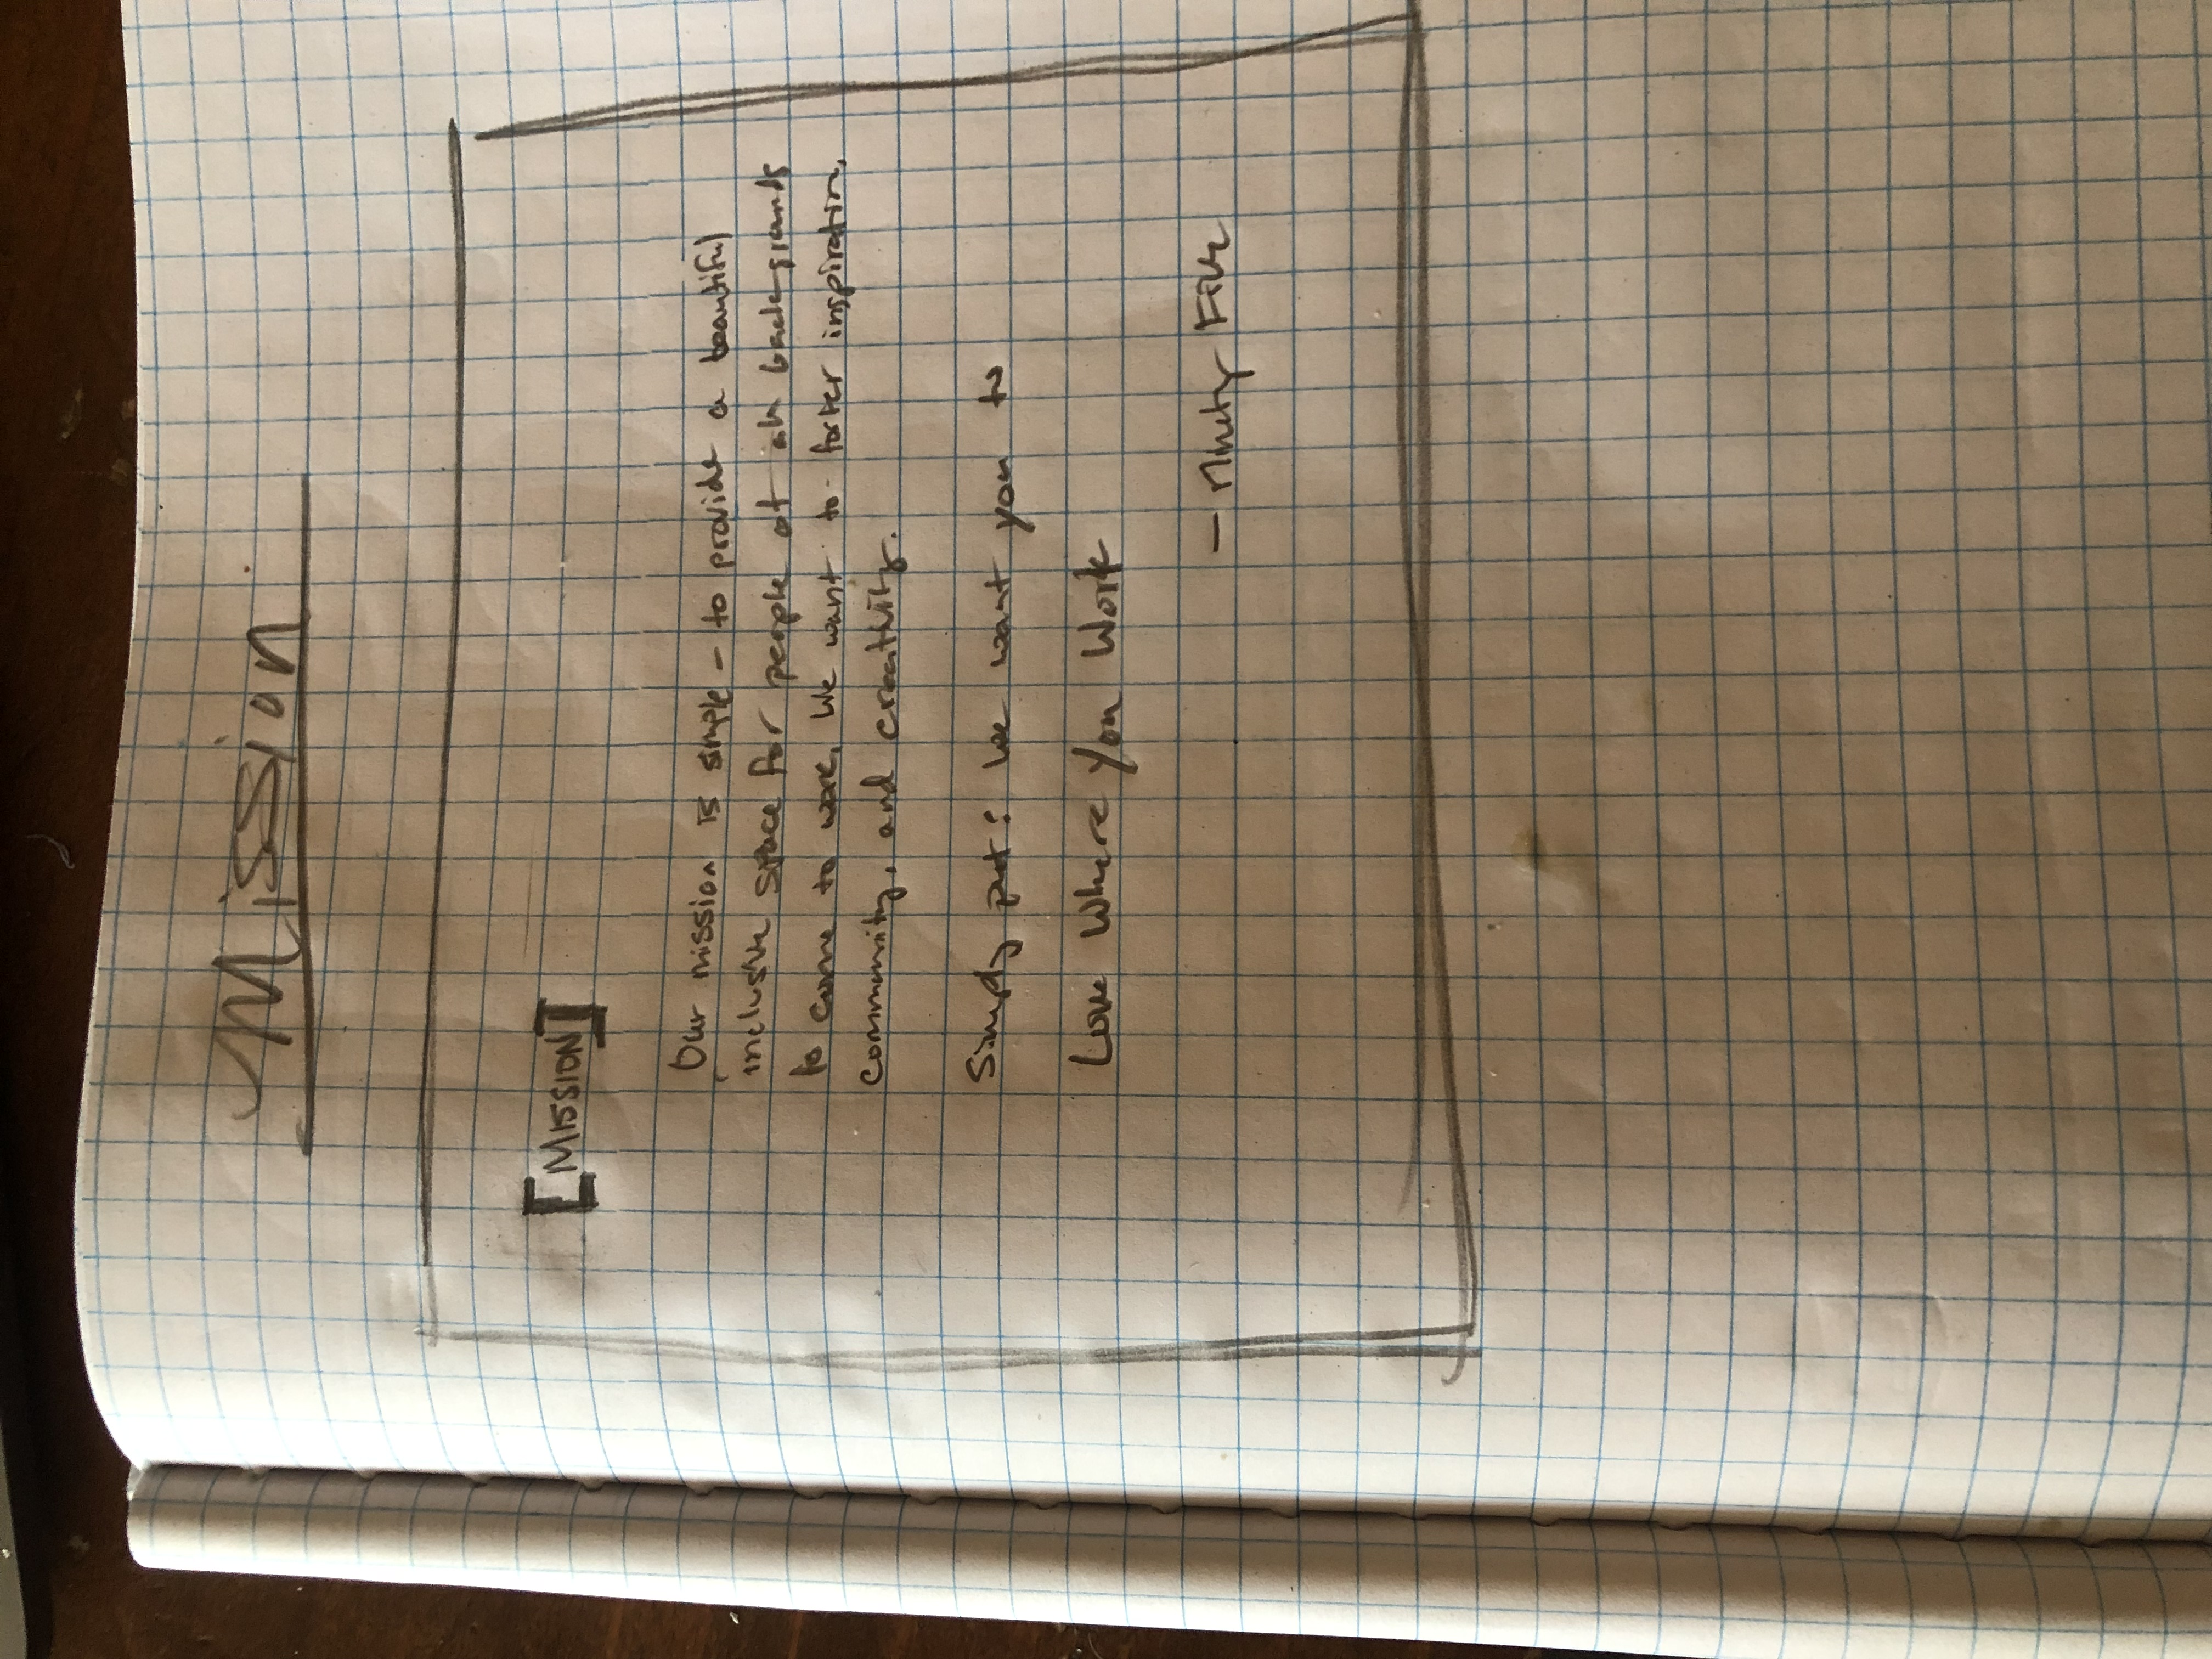 Mission
[MISSION]
Our mission is simple - to provide a beautiful
inclusive space for people of all backgrounds
to come to work. We want to foster inspiration,
community, and creativity.
Simply put: We want you to
Love Where You Work
- Ninety Five